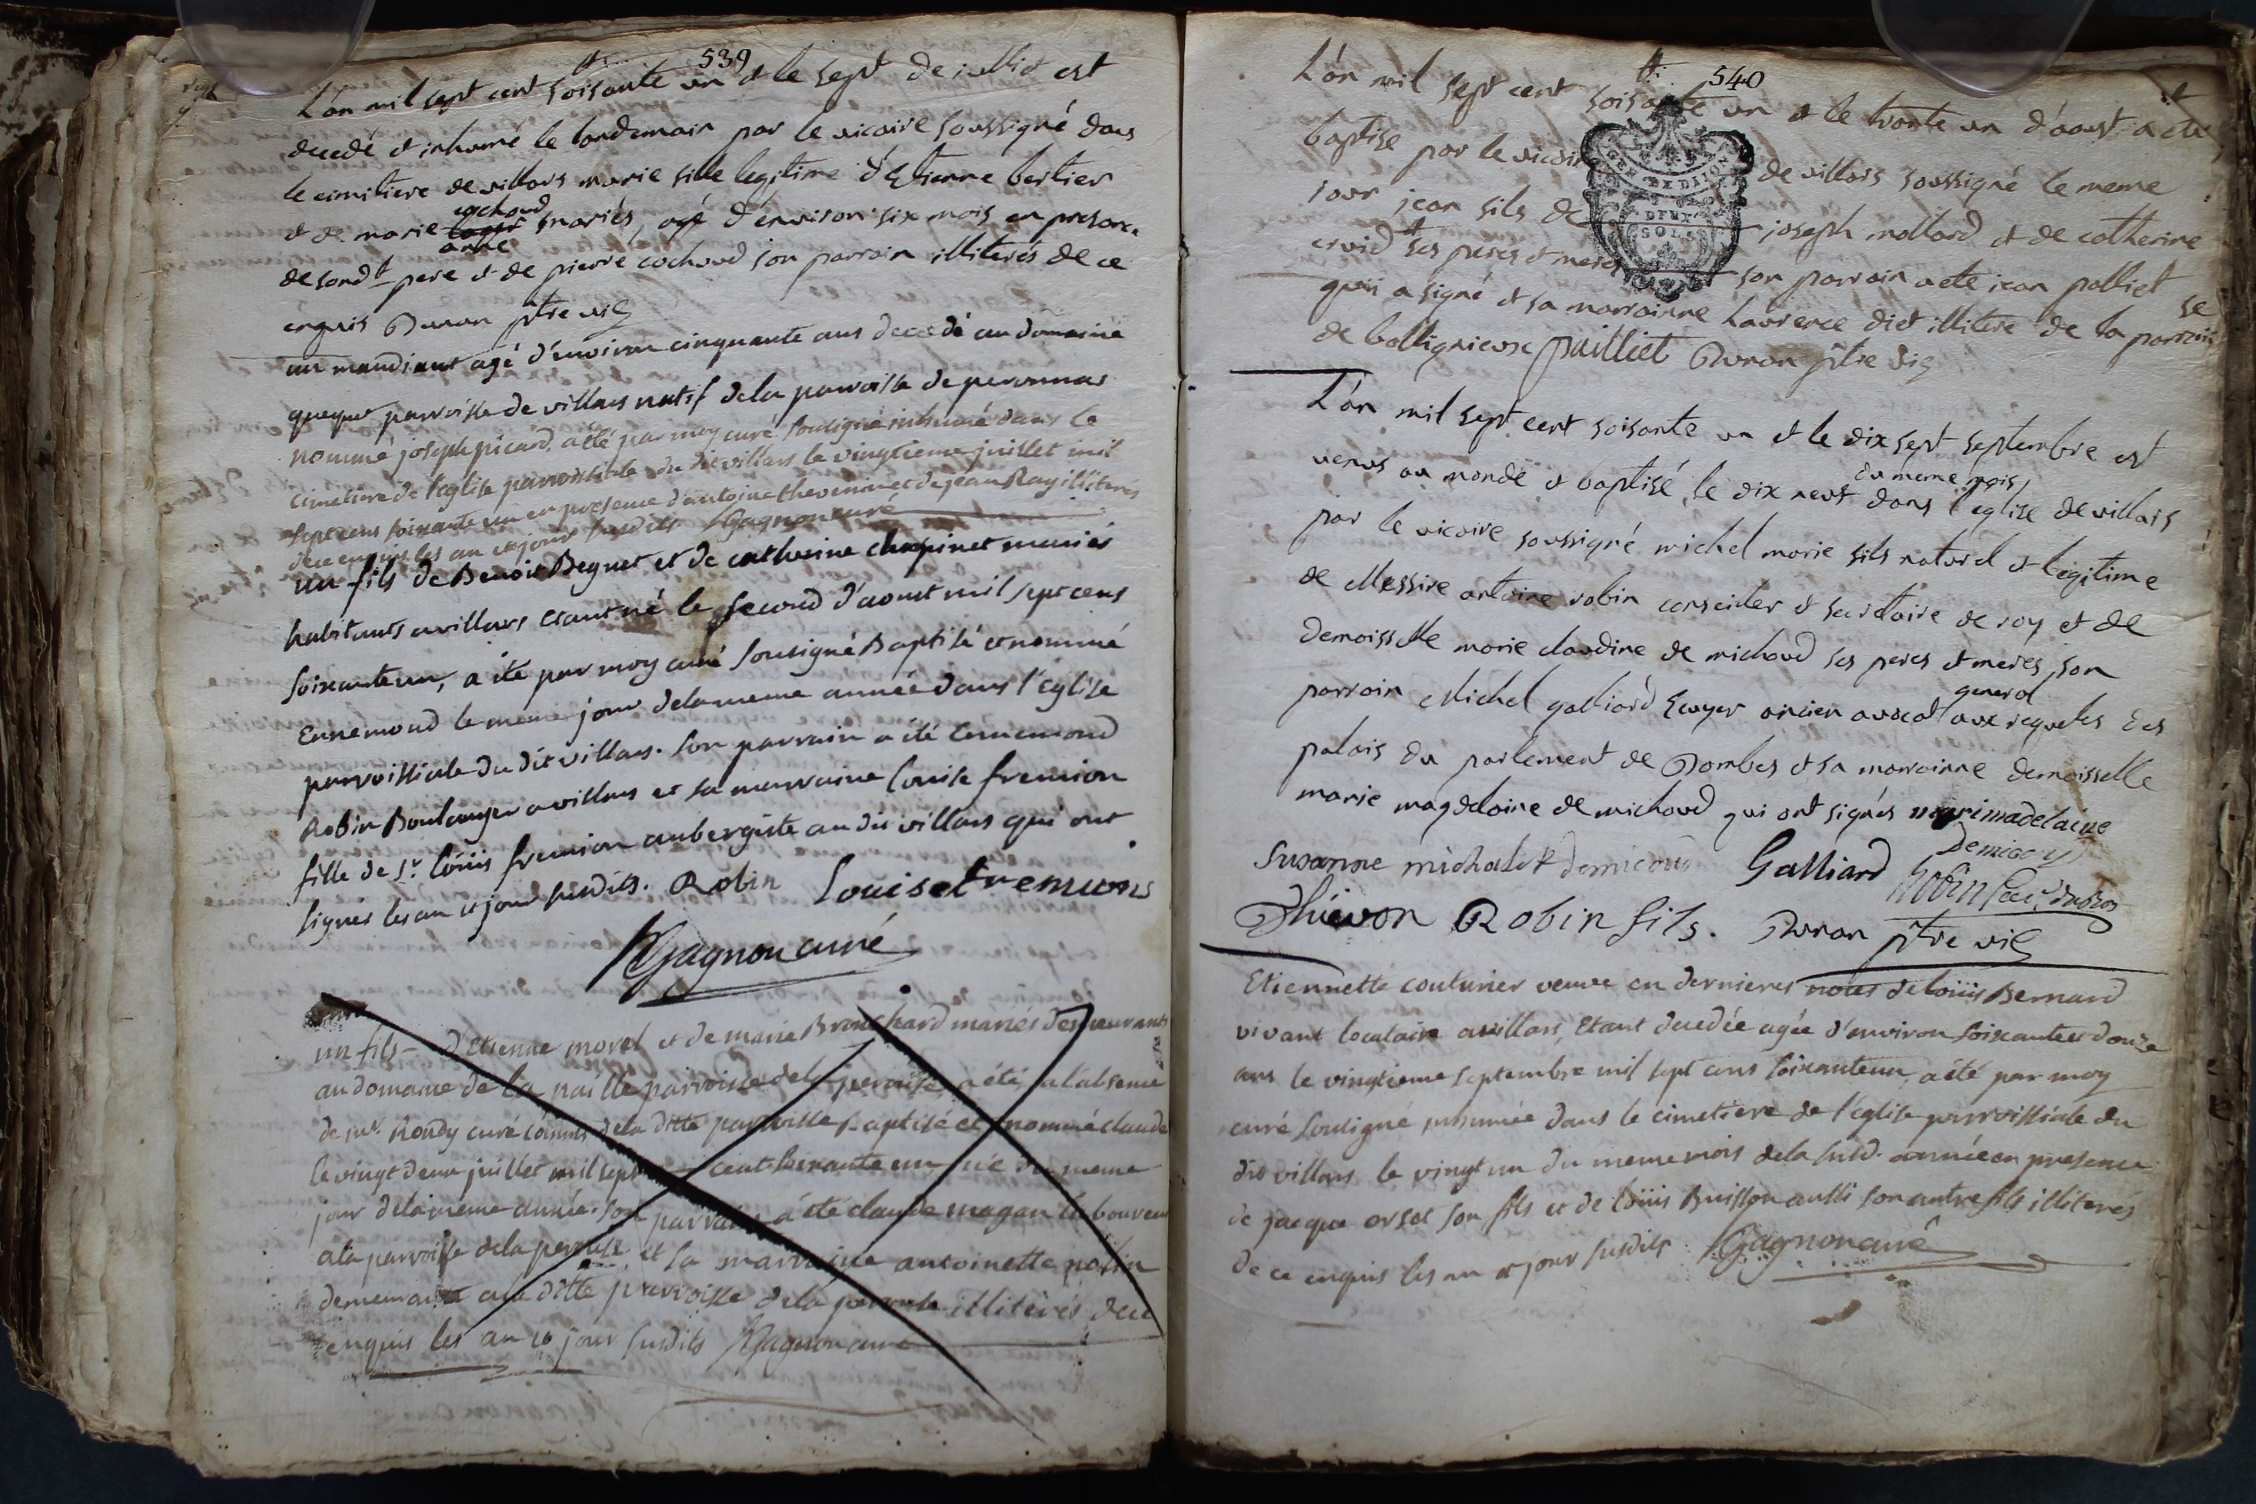 539
L'an mil sept cent soisante un et le sept de julliet est
decedé et inhumé le landemain par le vicaire soussigné dans
le cimitiere de villars marie fille legitime d'Etienne bertier
cochoud
et de marie anne mariés, agé d'environ six mois en presence
de sond^t pere et de pierre cochoud son parrain illiterés de ce
enquis Duran ptre vic
un mandiant agé d'environ cinquante ans decedé au domaine
parroisse de villars natif de la parroisse de peronnas
nommé joseph picard, a été par moy curé sousigné inhumé dans le
cimetiere de l'eglise parroissiale du dit villars le vingtieme juillet mil
sept cens soixante un en presence d'antoine thevenin et de jean Ray illiterés
de ce enquis les an et jour susdits Gagnon curé
un fils de Benoit Beguet et de catherine chapinet mariés
habitants a villars etant né le second d'aoust mil sept cens
soixante un, a été par moy curé sousigné Baptisé et nommé
Ennemond le meme jour de la meme année dans l'Eglise
parroissiale du dit villars. son parrain a été Ennemond
Robin Boulanger a villars et sa marraine louise fremion
fille de S^r. loüis fremion aubergiste au dit villars qui ont
signés les an et jour susdits. Robin Louise fremions
Gagnon curé
un fils d'Etienne morel et de marie Branchard mariés demeurants
au domaine de la paille parroisse de la perouse, a été, a l'absence
de m^r. Rondy curé de la ditte parroisse Baptisé et nommé claude
le vingt deux juillet mil sept cent soixante un né du meme
jour de la même année. son parrain a été claude magan laboureur
a la parroisse de la perouse et sa marraine antoinette
demeurante a la ditte parroisse de la perouse illiterés de ce
enquis les an et jour susdits Gagnon curé
540
L'an mil sept cent soisante un et le trante un d'aoust a ete
baptise par le vicaire de villars soussigné le meme
jour jean fils de joseph mollard et de catherine
cruid ses peres et meres son parrain a ete jean palliet
qui a signé et sa marrainne laurence diet illitere de la parroisse
de bollignieux pailliet Duran ptre vic
GEN. DE DIJON
DEUX
SOLS
L'an mil sept cent soisante un et le dix sept septembre est
du meme mois
venus au monde et baptisé le dix neuf dans l'eglise de villars
par le vicaire soussigné michel marie fils naturel et legitime
de Messire antoine robin conseiller et secretaire de roy et de
demoisselle marie claudine de michoud ses peres et meres, son
general
parrain Michel galliard Ecuyer ancien avocat aux requetes des
palais du parlement de Dombes et sa marrainne demoisselle
marie magdelaine de michoud qui ont signés marimadelaine
Susanne Galliard
Robin
Thievon Robin fils. Duran ptre vic
Etiennette couturier veuve en dernieres noces de loüis Bernard
vivant locataire a villars, Etant decedée agée d'environ soixante et douze
ans le vingtieme septembre mil sept cens soixante un, a été par moy
curé sousigné inhumée dans le cimetiere de l'eglise parroissiale du
dit villars le vingt un du meme mois de la susd. année en presence
de jacque orset son fils et de loüis Buisson aussi son autre fils illiterés
de ce enquis les an et jour susdits Gagnon curé